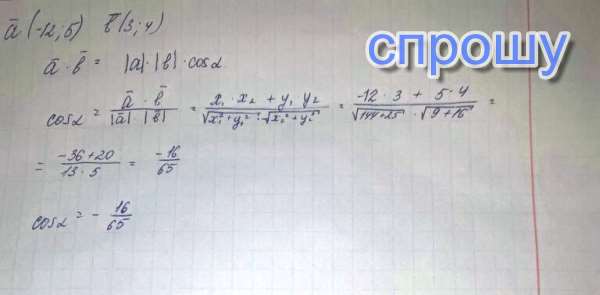 ā (-12; 5) b̄ (3; 4)
спрошу
ā · b̄ = |ā| · |b̄| · cosα
cosα = ā · b̄ / |ā| · |b̄| = x₁ · x₂ + y₁ y₂ / √x₁² + y₁² · √x₂² + y₂² = -12 · 3 + 5 · 4 / √144 + 25 · √9 + 16 =
= -36 + 20 / 13 · 5 = -16 / 65
cosα = - 16 / 65